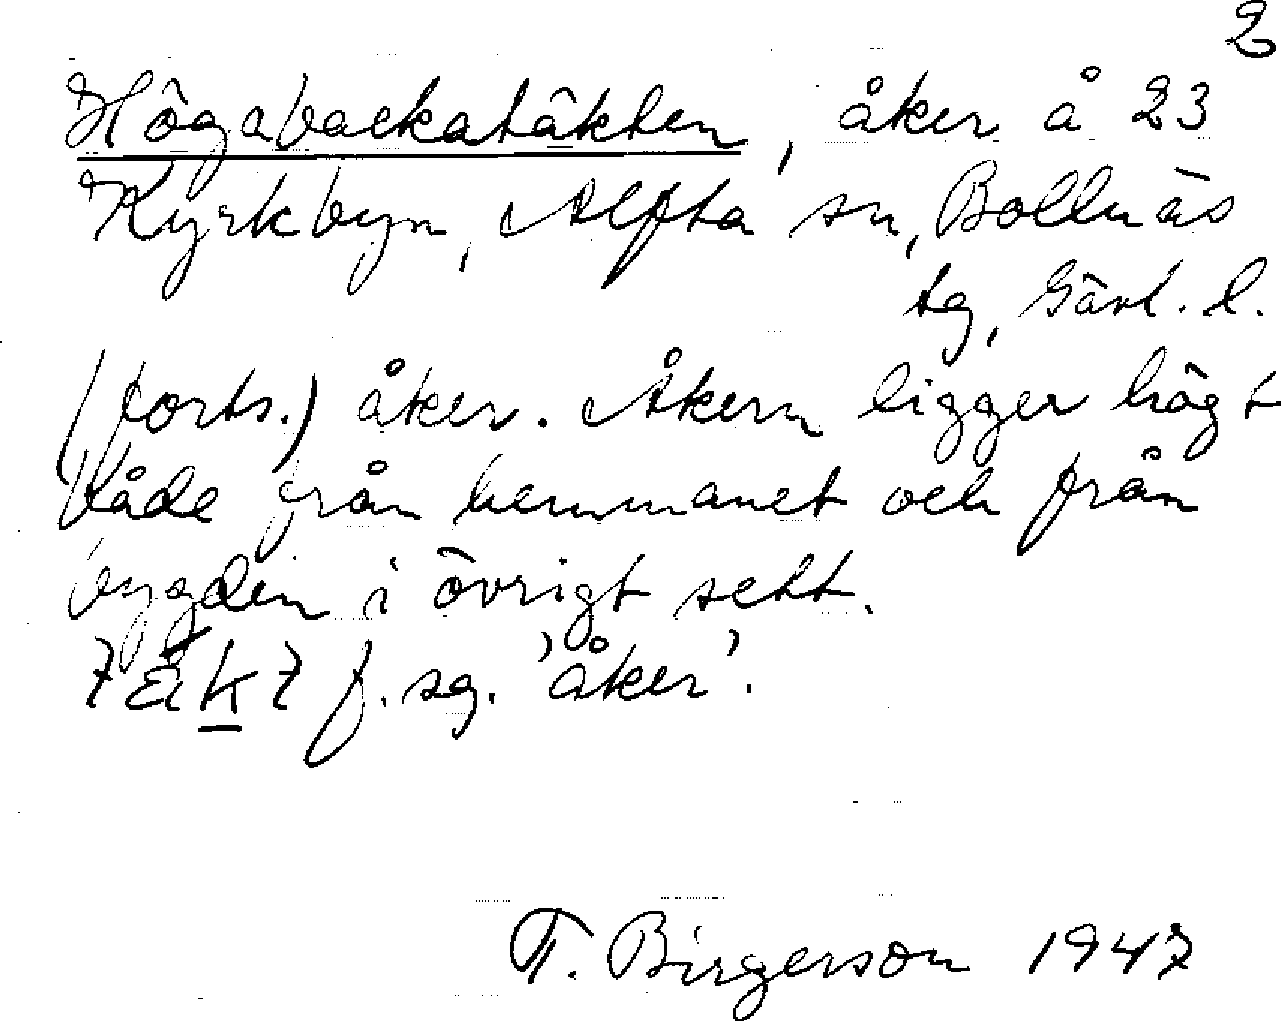 2
Högabackatäkten, åker å 23
Kyrkbyn, Alfta sn, Bollnäs
tg, Gävl. l.
(forts.) åker. Åkern ligger högt
både från hemmanet och från
bygden i övrigt sett.
f. sg. 'åker'.
F. Birgerson 1947